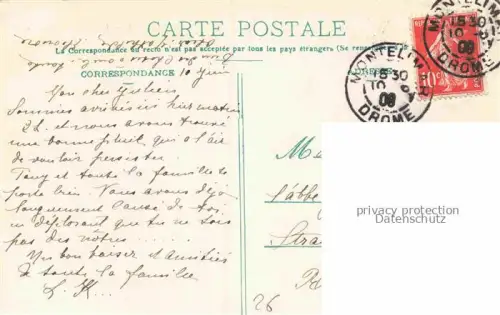 CARTE POSTALE
La Correspondance au recto n'est pas acceptée par tous les pays étrangers (Se rens
CORRESPONDANCE
ADRESSE
10 Juin
MONTELIMAR
15 30
10 6
08
DROME
MONTELIMAR
15 30
10 6
08
DROME
Mon cher Julien
Sommes arrivés hier matin
2h. et nous avons trouvé
une bonne pluie qui a l'air
de vouloir persister.
Tony et toute la famille se
porte bien. Nous avons déjà
longuement causé de toi
en déplorant que tu ne sois
pas des nôtres.....
Un bon baiser et amitiés
de toute la famille
L. K...
l'abbé
Stra
26
privacy protection
Datenschutz